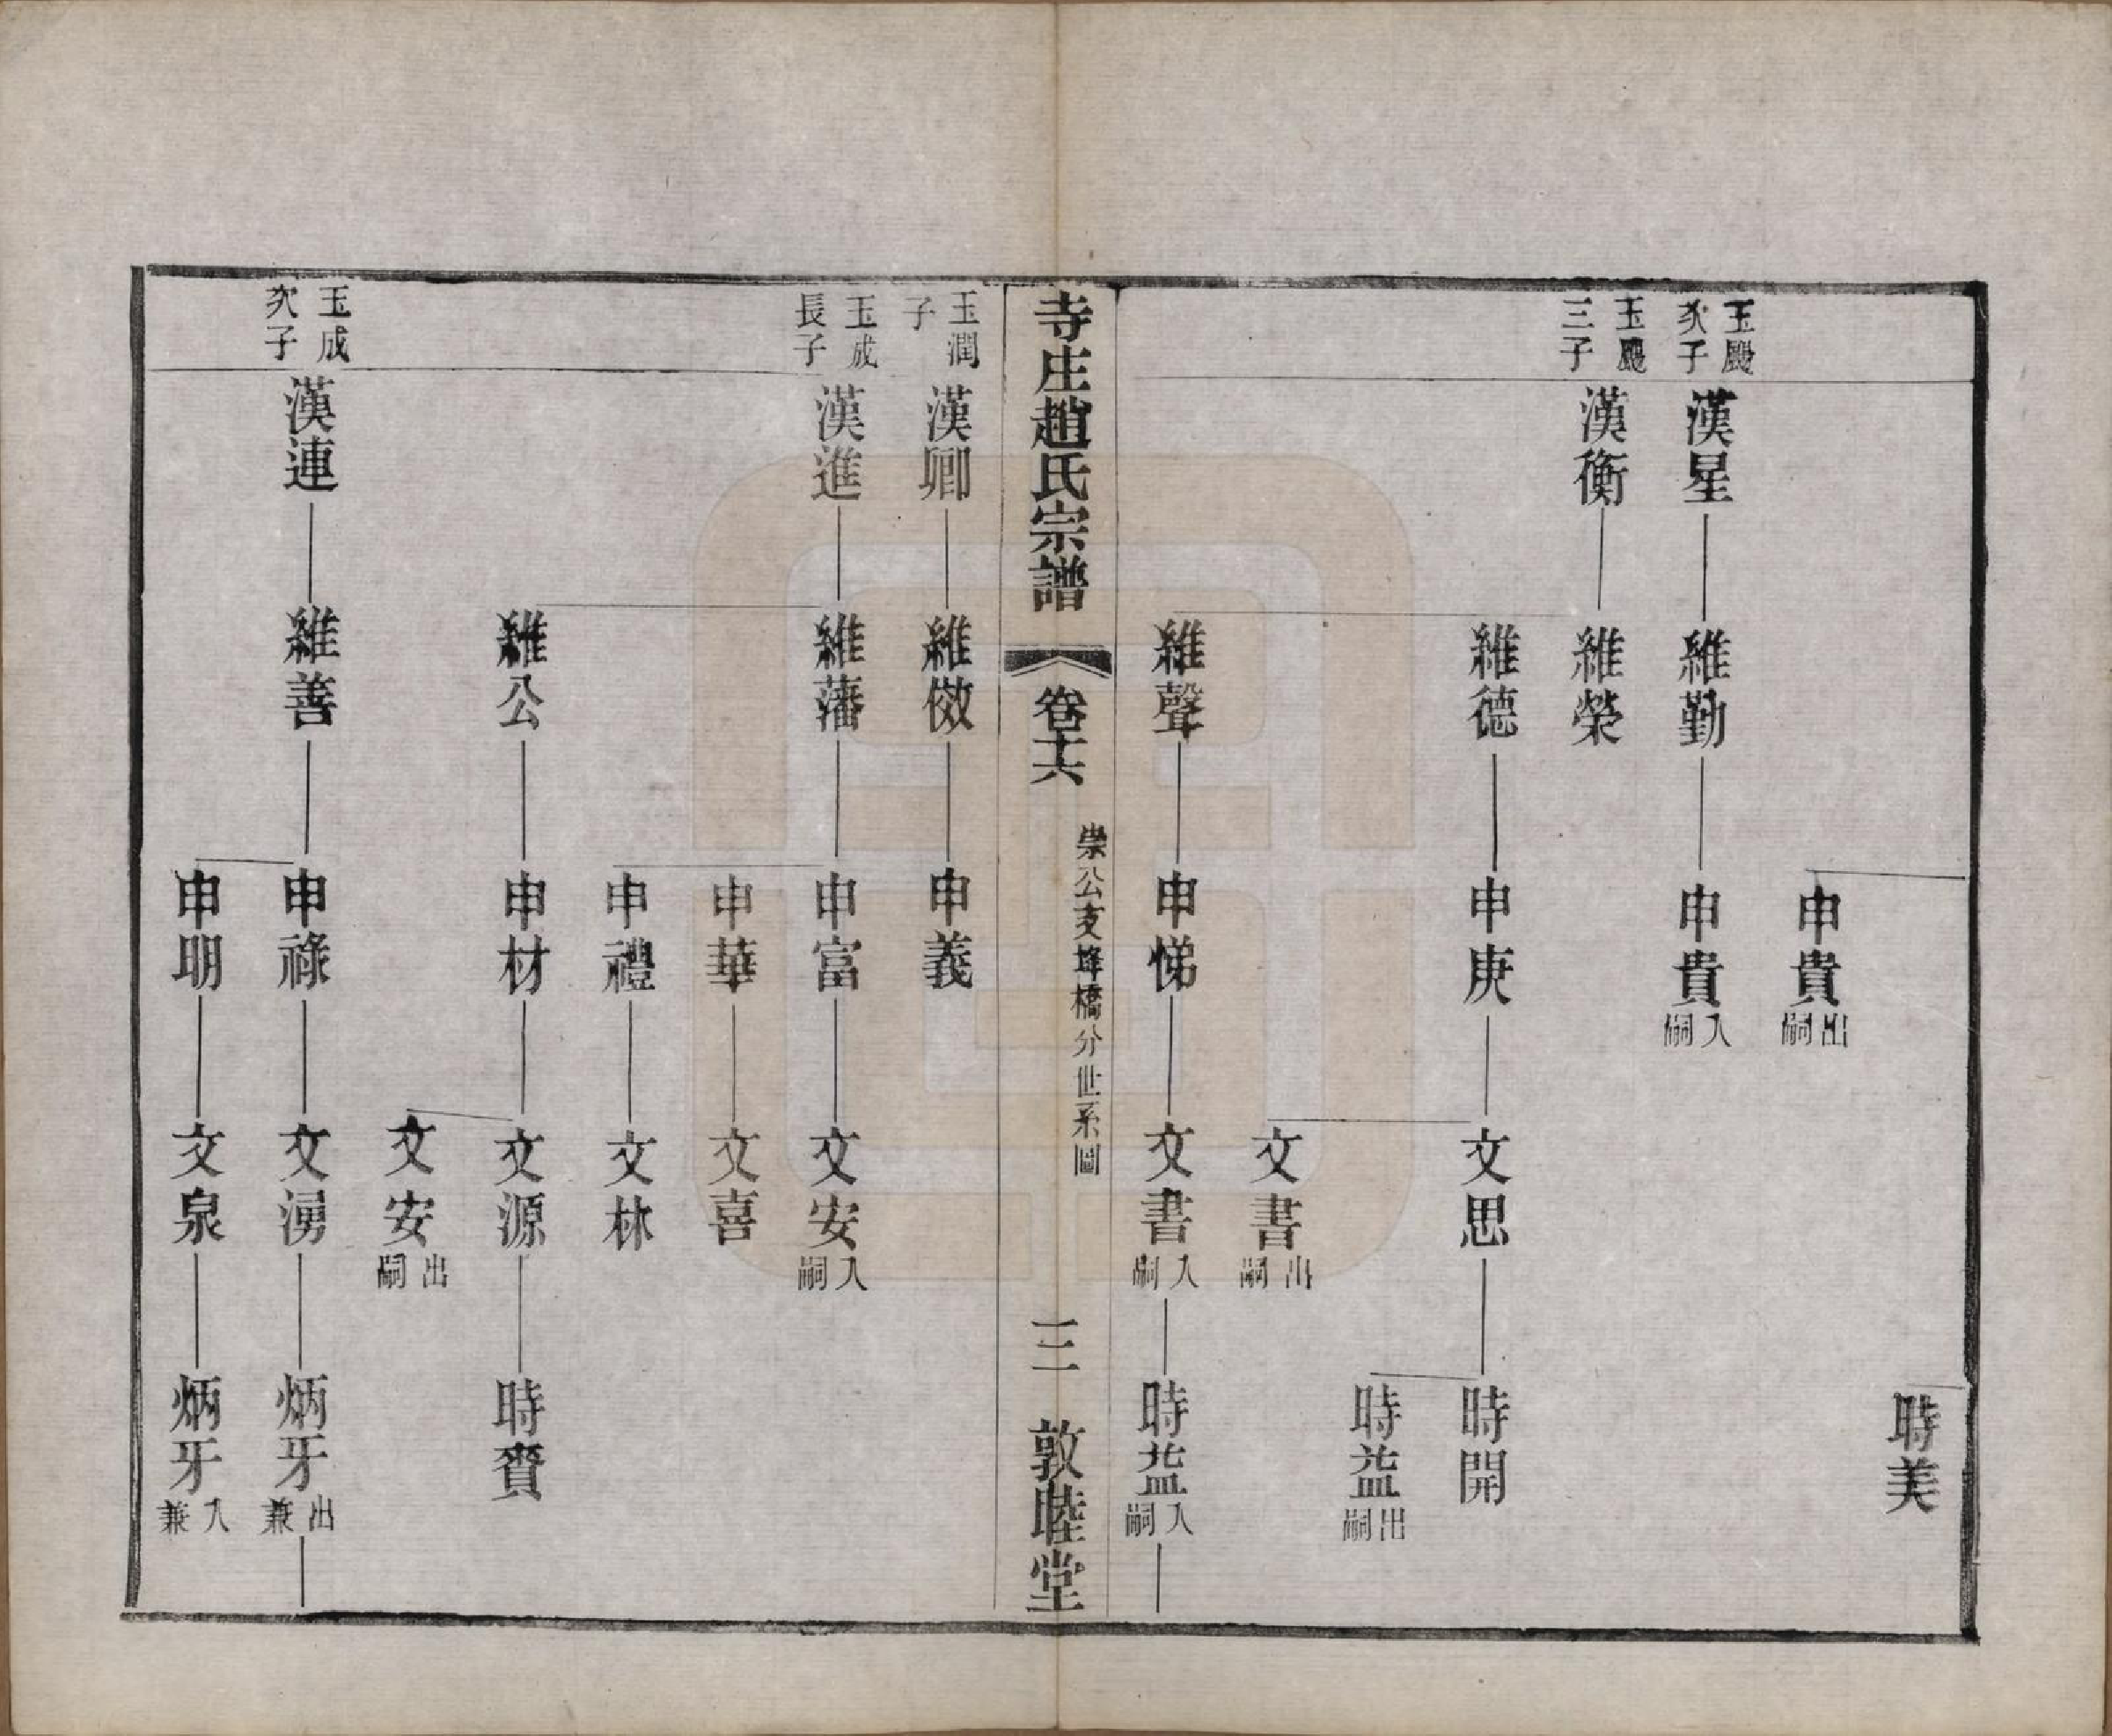 時美
申貴 出嗣
玉颺次子 漢星 維勤 申貴 入嗣
玉颺三子 漢衡 維榮
維德 申庚 文思 時開
時益 出嗣
文書 出嗣
維聲 申悌 文書 入嗣 時益 入嗣
寺庄趙氏宗譜 卷十六 崇公支埄橋分世系圖 三 敦睦堂
玉潤子 漢卿 維傚 申義
玉成長子 漢進 維藩 申富 文安 入嗣
申華 文喜
申禮 文林
維公 申材 文源 時賚
文安 出嗣
玉成次子 漢連 維善 申祿 文湧 炳牙 出兼
申明 文泉 炳牙 入兼